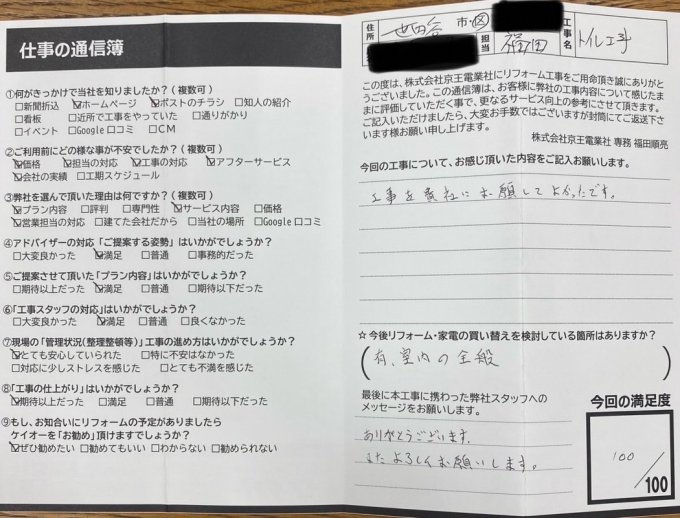 仕事の通信簿
①何がきっかけで当社を知りましたか?(複数可)
□新聞折込 ☑ホームページ ☑ポストのチラシ □知人の紹介
□看板 □近所で工事をやっていた □通りがかり
□イベント □Google口コミ □CM
②ご利用前にどの様な事が不安でしたか?(複数可)
☑価格 ☑担当の対応 ☑工事の対応 ☑アフターサービス
☑会社の実績 □工期スケジュール
③弊社を選んで頂いた理由は何ですか?(複数可)
☑プラン内容 □評判 □専門性 ☑サービス内容 □価格
☑営業担当の対応 □建てた会社だから □当社の場所 □Google口コミ
④アドバイザーの対応「ご提案する姿勢」はいかがでしょうか?
□大変良かった ☑満足 □普通 □事務的だった
⑤ご提案させて頂いた「プラン内容」はいかがでしょうか?
□期待以上だった ☑満足 □普通 □期待以下だった
⑥「工事スタッフの対応」はいかがでしょうか?
□大変良かった ☑満足 □普通 □良くなかった
⑦現場の「管理状況(整理整頓等)」工事の進め方はいかがでしょうか?
☑とても安心していられた □特に不安はなかった
□対応に少しストレスを感じた □とても不満を感じた
⑧「工事の仕上がり」はいかがでしょうか?
☑期待以上だった □満足 □普通 □期待以下だった
⑨もし、お知合いにリフォームの予定がありましたら
ケイオーを「お勧め」頂けますでしょうか?
☑ぜひ勧めたい □勧めてもいい □わからない □勧められない
住所 世田谷 市・区 担当 福田 工事名 トイレ工事
この度は、株式会社京王電業社にリフォーム工事をご用命頂き誠にありがと
うございました。この通信簿は、お客様に弊社の工事内容について感じたま
まに評価していただく事で、更なるサービス向上の参考にさせて頂きます。
ご記入いただきましたら、大変お手数ではございますが封筒にてご返送下さ
います様お願い申し上げます。
株式会社京王電業社 専務 福田順亮
今回の工事について、お感じ頂いた内容をご記入お願いします。
工事を貴社にお願してよかったです。
☆今後リフォーム・家電の買い替えを検討している箇所はありますか?
(有、室内の全般)
最後に本工事に携わった弊社スタッフへの
メッセージをお願いします。
ありがとうございます。
またよろしくお願いします。
今回の満足度
100/100